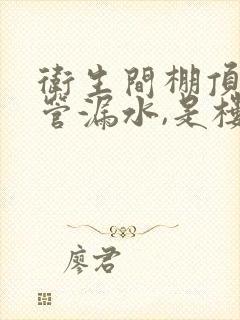 衛生間棚頂
管漏水,是樓
廖君